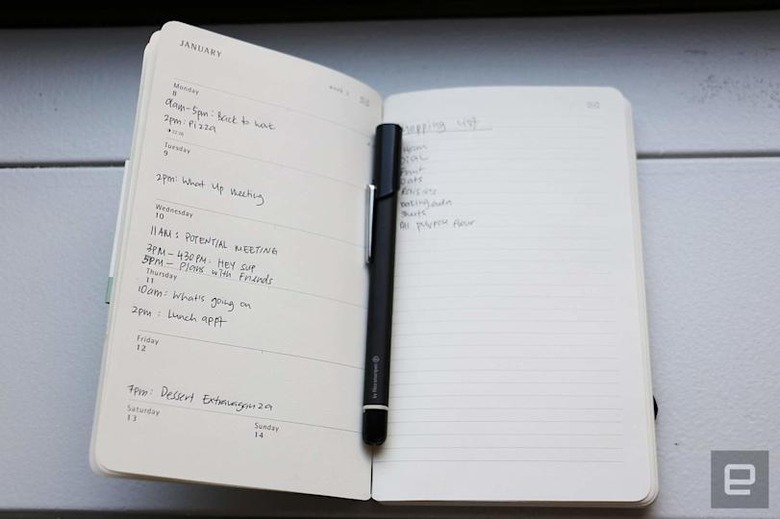 JANUARY
week 2
Monday
8
9am-5pm: Back to work
2pm: Pizza
Tuesday
9
2pm: What Up Meeting
Wednesday
10
11AM: POTENTIAL MEETING
3PM-430PM: HEY SUP
5PM- Plans with Friends
Thursday
11
10am: What's going on
2pm: Lunch appt
Friday
12
7pm: Dessert Extravaganza
Saturday
13
Sunday
14
List
Raisins
baking soda
All purpose flour
e